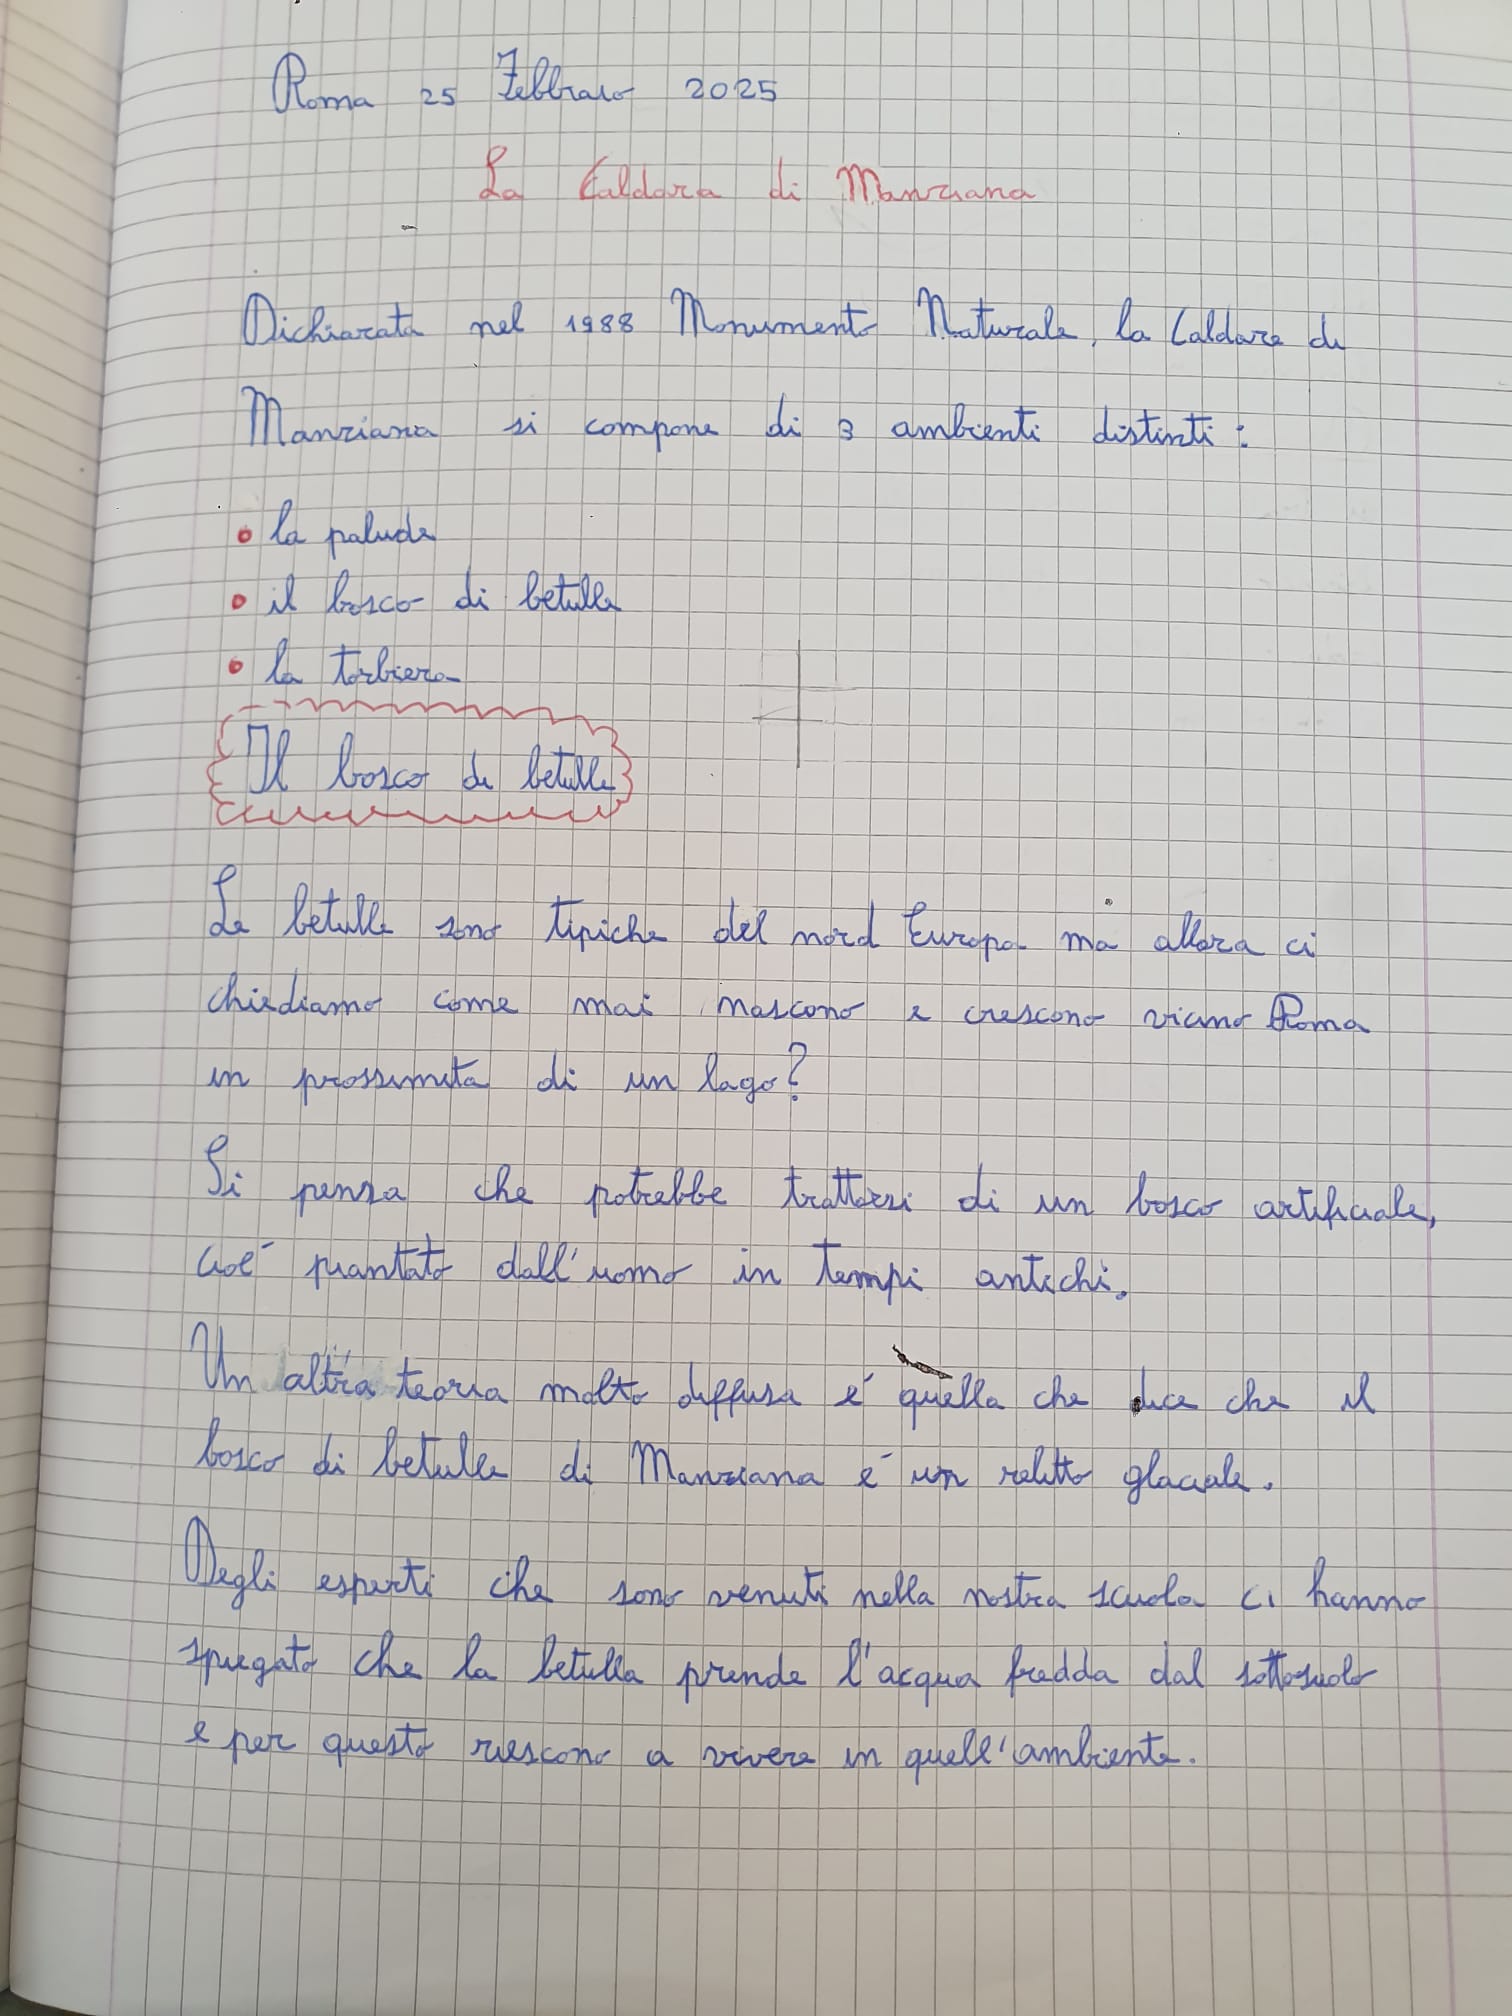 Roma 25 Febbraio 2025
La Caldara di Manziana
Dichiarata nel 1988 Monumento Naturale, la Caldara di
Manziana si compone di 3 ambienti distinti:
• la palude
• il bosco di betulle
• la torbiera
Il bosco di betulle
Le betulle sono tipiche del nord Europa ma allora ci
chiediamo come mai nascono e crescono vicino Roma
in prossimita di un lago?
Si pensa che potrebbe trattarsi di un bosco artificiale,
cioé piantato dall'uomo in tempi antichi.
Un altra teoria molto diffusa é quella che dice che il
bosco di betulle di Manziana é un relitto glaciale.
Degli esperti che sono venuti nella nostra scuola ci hanno
spiegato che la betulla prende l'acqua fredda dal sottosuolo
e per questo riescono a vivere in quell'ambiente.